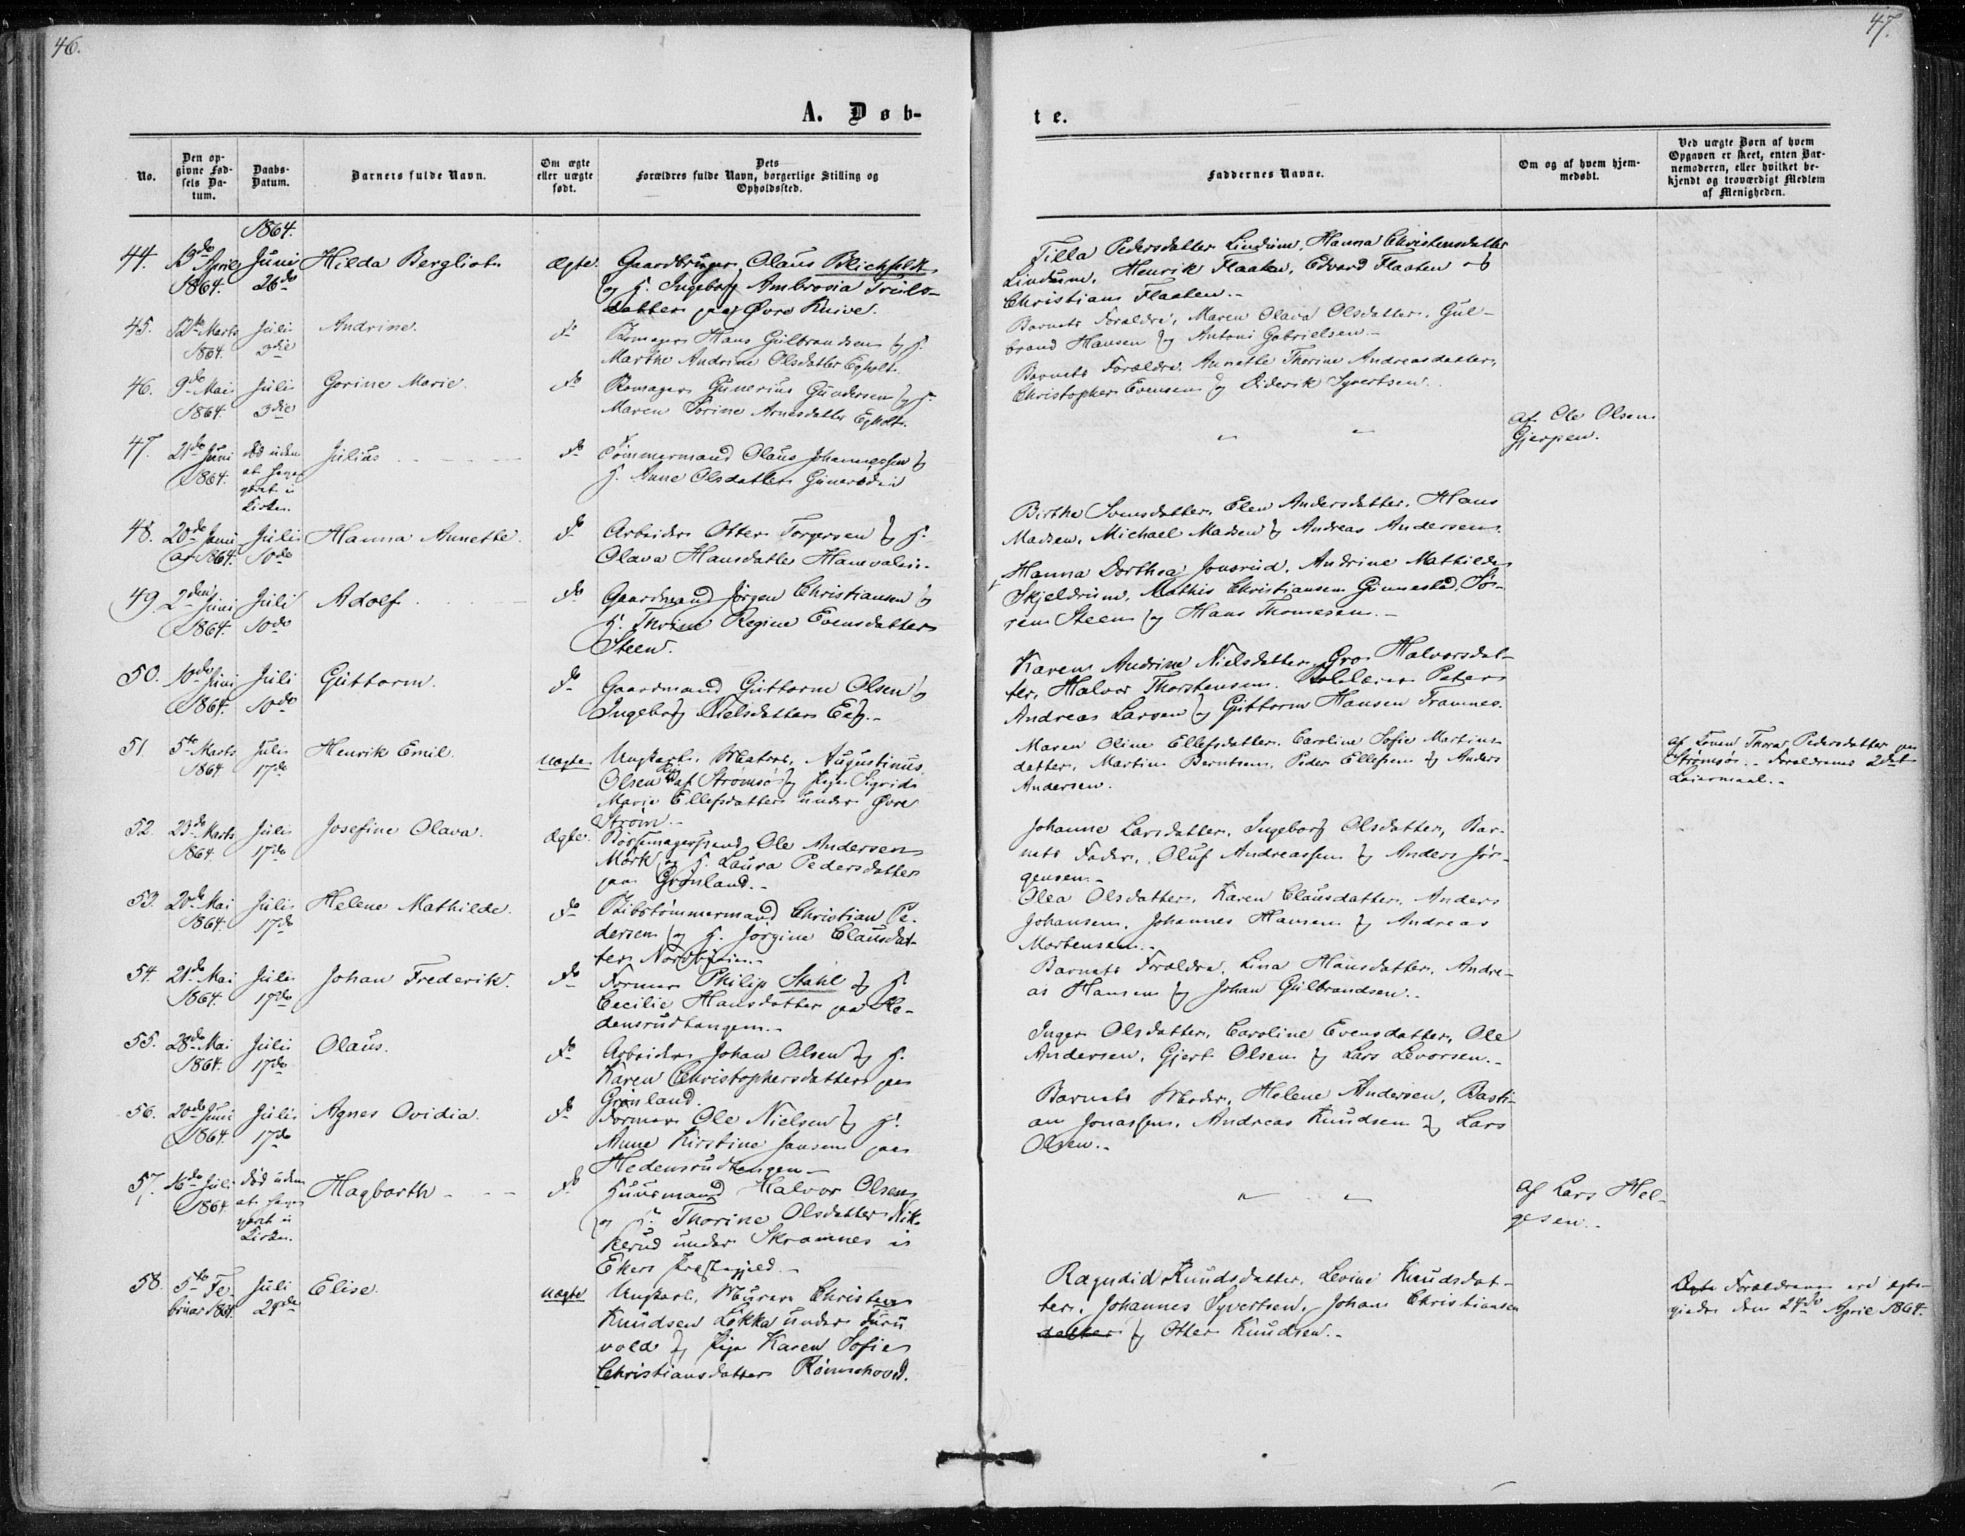 46.
A. Døb-
No.
Den op-
givne Fød-
sels Da-
tum.
Daabs-
Datum.
Barnets fulde Navn.
Om ægte
eller uægte
født.
Dets
Forældres fulde Navn, borgerlige Stilling og
Opholdssted.
1864.
44. April 1864. Juni 26de Hilda Bergliot. Ægte. Gaardbruger Olaus Blichfeldt
og H. Ingeborg Ambrosia Truls-
datter paa Øvre Knive.
45. Marts 1864. Juli 3die Andrine. do Hans Gulbrandsen og H.
Marthe Andrine Olsdatter Egholt.
46. 9de Mai 1864. Juli 3die Gorine Marie. do Gunerius Gundersen og H.
Maren Sorine Arnesdatter Egholt.
47. 21de Juni 1864. død uden
at have
været i
Kirken. Julius do Tømmermand Olaus Johannessen og
H. Anne Olsdatter
48. 20de Juni 1864. Juli 10de Hanna Annette. do Arbeider Otter Torgersen og H.
Olava Hansdatter
49 2den Juni 1864. Juli 10de Adolf do Gaardmand Jørgen Christiansen og
H. Thrine Regine Evensdatter
Steen.
50. 10de Juni 1864. Juli 10de Guttorm. do Gaardmand Guttorm Olsen og
Ingeborg Nielsdatter Eeg.
51 5te Marts 1864 Juli 17de Henrik Emil. uægte Ungkarl, Matros, Augustinus
Olsen af Strømsø og Pige Sigrid
Marie Ellefsdatter under Øvre
Strøm.
52. 23de Marts 1864. Juli 17de Josefine Olava. Ægte. Bøssemagersvend Ole Andersen
Mørk og H. Laura Pedersdatter
paa Grønland.
53. 20de Mai 1864. Juli 17de Helene Mathilde. do Skibstømmermand Christian Pe-
dersen og H. Jørgine Clausdat-
ter
54. 21de Mai 1864. Juli 17de Johan Frederik. do Former Philip Stahl og H.
Cecilie Hansdatter paa He-
densrudtangen.
55. 28de Mai 1864. Juli 17de Olaus. do Arbeider Johan Olsen og H.
Karen Christophersdatter paa
Grønland.
56. 20de Juni 1864. Juli 17de Agnes Ovidia. do Former Ole Nielsen og H.
Anne Kirstine Jansen paa
Hedensrudtangen
57. 16de Juli 1864 død uden
at have
været i
Kirken. Hagbarth do Huusmand Halvor Olsen
og H. Thorine Olsdatter Nik-
kerud under Skramnes i
Ekers Præstegjeld.
58. 5te Fe-
bruar 1864. Juli 24de Elise. uægte Ungkarl, Murer Christen
Knudsen Løkka under
og Pige Karen Sofie
Christiansdatter
47.
te.
Faddernes Navne.
Om og af hvem hjem-
medøbt.
Ved uægte Børn af hvem
Opgaven er skeet, enten Bar-
nemoderen, eller hvilket be-
kjendt og troværdigt Medlem
af Menigheden.
Tilla Pedersdatter Lindum, Hanna Christensdatter
Lindum, Henrik Flaaten, Edvard Flaaten og
Christian Flaaten.
Barnets Forældre, Maren Olava Olsdatter, Gul-
brand Hansen og Antoni Gabrielsen.
Barnets Forældre, Annette Thorine Andreasdatter,
Christopher Evensen og Diderik Syvertsen.
" "
af Ole Olsen
Gjerpen.
Birthe Svensdatter, Elen Andersdatter, Hans
Madsen, Michael Madsen og Andreas Andersen.
Hanna Dorthea Jonsrud, Andrine Mathilde
Skjeldrum, Mathis Christiansen Gunnestad, Sø-
ren Steen og Hans Thomesen.
Karen Andrine Nielsdatter, Gro Halvorsdat-
ter, Halvor Thorstensen, Peter
Andreas Larsen og Guttorm Hansen Tramnes.
Maren Oline Ellefsdatter, Caroline Sofie Martins-
datter, Martin Berntsen, Peder Ellefsen og Anders
Andersen.
af Konen Thora Pedersdatter paa
Strømsø. Forældrenes 2det
Leiermaal.
Johanne Larsdatter, Ingeborg Olsdatter, Bar-
nets Fader, Oluf Andreassen og Anders Jør-
gensen.
Olea Olsdatter, Karen Clausdatter, Anders
Johansen, Johannes Hansen og Andreas
Mortensen.
Barnets Forældre, Lina Hansdatter, Andre-
as Hansen og Johan Gulbrandsen.
Inger Olsdatter, Caroline Evensdatter, Ole
Andersen, Gjert Olsen og Lars Levorsen.
Barnets Moder, Helene Andersen, Basti-
an Jonassen, Andreas Knudsen og Lars
Olsen.
" "
af Lars Hel-
gesen.
Ragndid Knudsdatter, Levine Knudsdat-
ter, Johannes Syvertsen, Johan Christiansen
datter og Otter Knudsen.
Ægte Forældrene ere ægte-
viede den 24de April 1864.